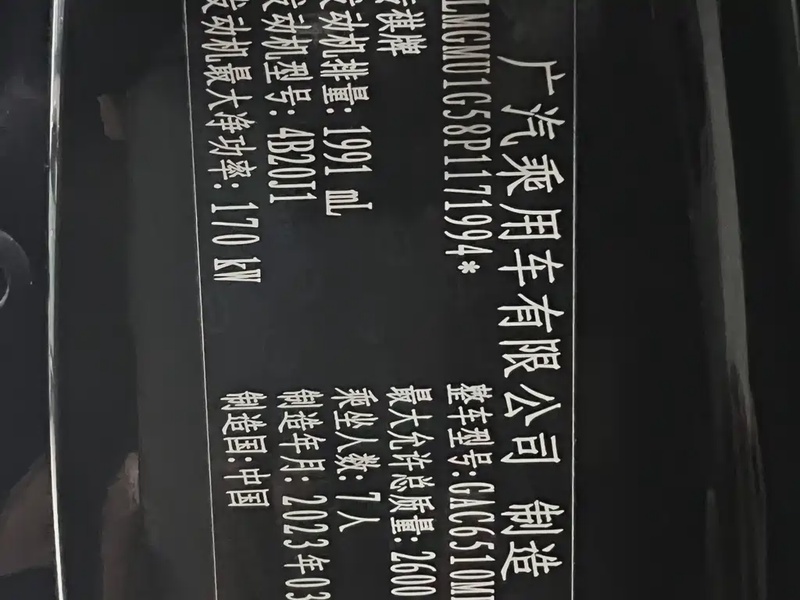 广汽乘用车有限公司 制造
LMGMU1G58P1171994*
整车型号:GAC6510M
祺牌
最大允许总质量:2600
发动机排量:1991 mL
乘坐人数:7人
发动机型号:4B20J1
制造年月:2023年03
发动机最大净功率:170 kW
制造国:中国